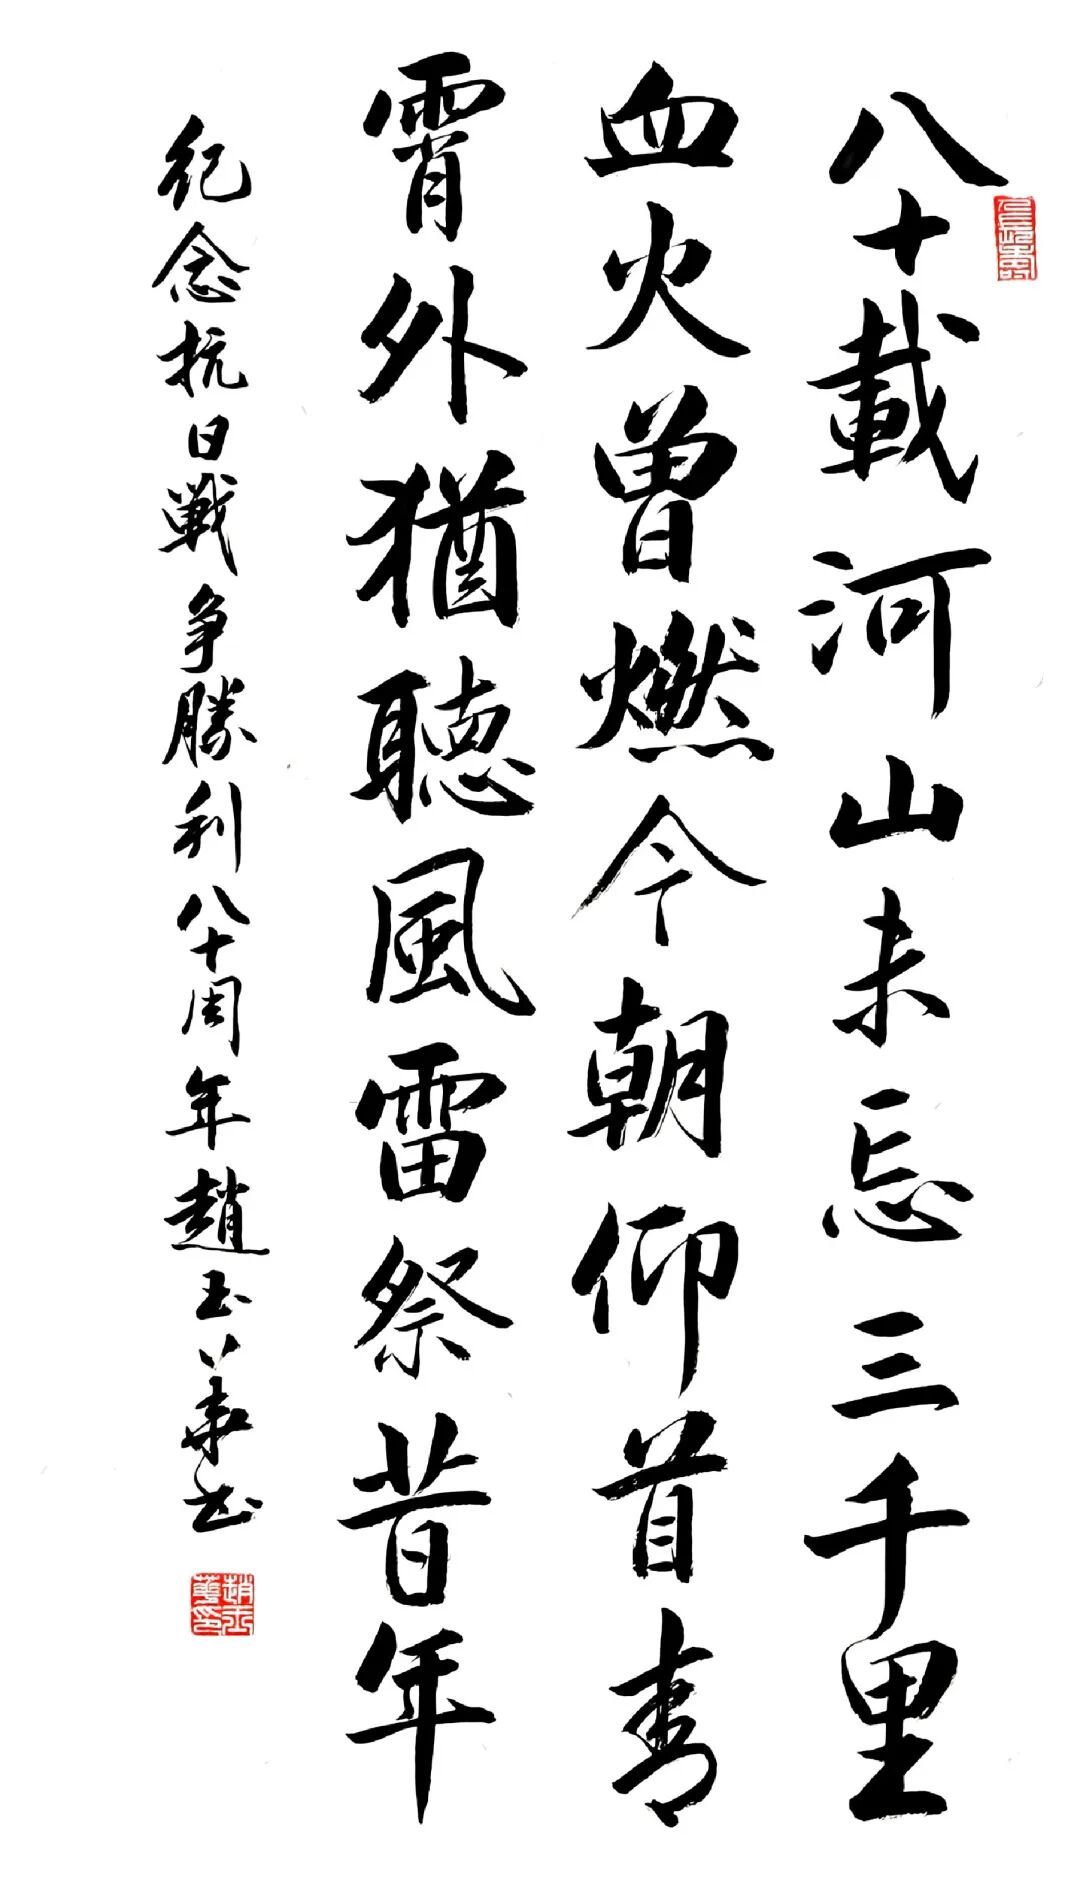 八十載河山未忘三千里
血火曾燃今朝仰首青
霄外猶聽風雷祭昔年
纪念抗日戰争勝利八十周年趙玉華书
趙玉華印